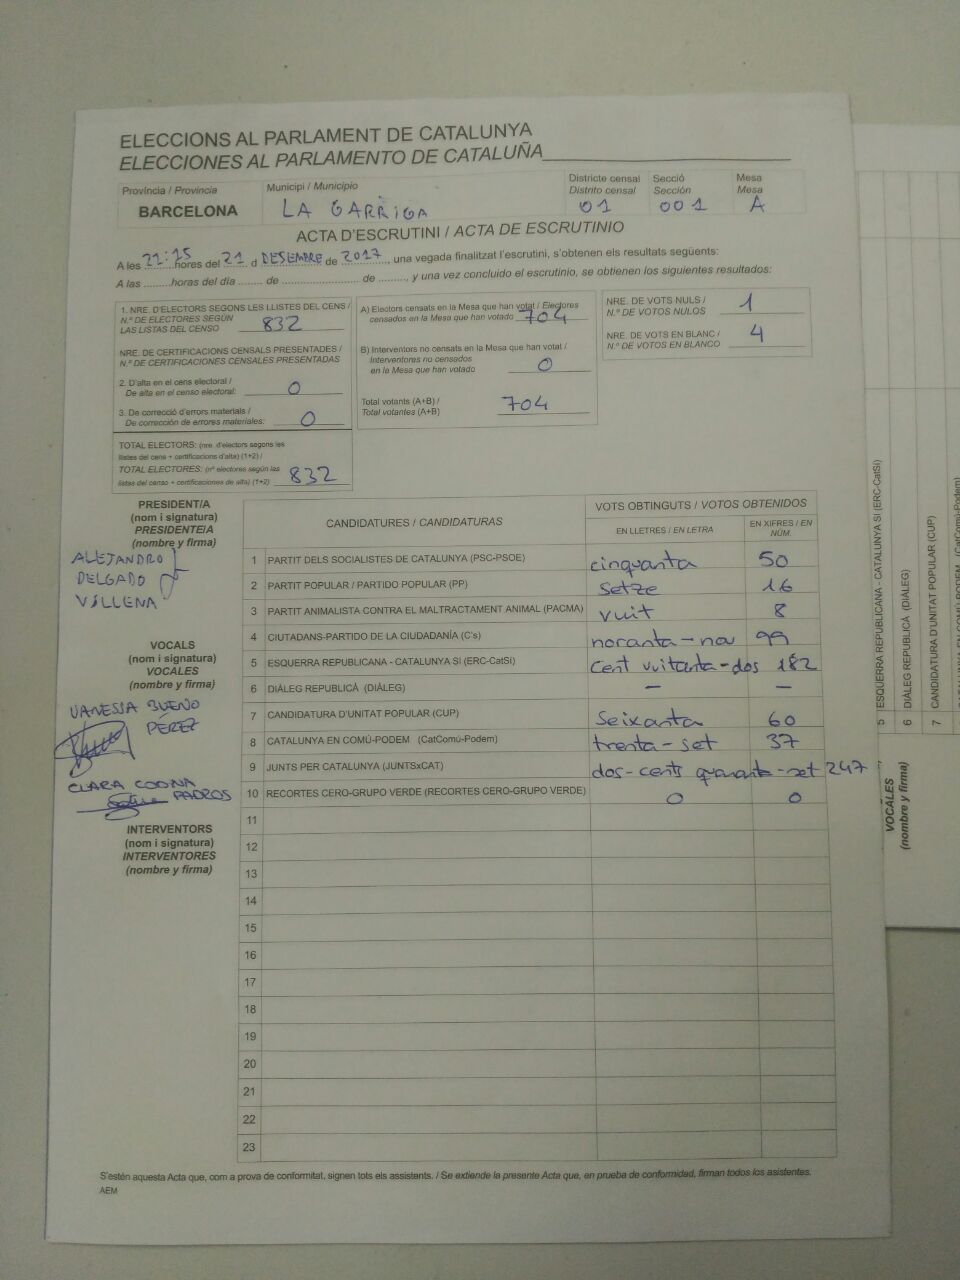 ELECCIONS AL PARLAMENT DE CATALUNYA
ELECCIONES AL PARLAMENTO DE CATALUÑA
Província / Provincia
BARCELONA
Municipi / Municipio
LA GARRIGA
Districte censal
Distrito censal
01
Secció
Sección
001
Mesa
Mesa
A
ACTA D'ESCRUTINI / ACTA DE ESCRUTINIO
A les 21:15 hores del 21 d DESEMBRE de 2017, una vegada finalitzat l'escrutini, s'obtenen els resultats següents:
A las .........horas del día ........ de .......................... de ........, y una vez concluido el escrutinio, se obtienen los siguientes resultados:
1. NRE. D'ELECTORS SEGONS LES LLISTES DEL CENS /
N.º DE ELECTORES SEGÚN
LAS LISTAS DEL CENSO 832
NRE. DE CERTIFICACIONS CENSALS PRESENTADES /
N.º DE CERTIFICACIONES CENSALES PRESENTADAS
2. D'alta en el cens electoral /
De alta en el censo electoral: 0
3. De correcció d'errors materials /
De corrección de errores materiales: 0
TOTAL ELECTORS: (nre. d'electors segons les
llistes del cens + certificacions d'alta) (1+2) /
TOTAL ELECTORES: (nº electores según las
listas del censo + certificaciones de alta) (1+2) 832
A) Electors censats en la Mesa que han votat / Electores
censados en la Mesa que han votado 704
B) Interventors no censats en la Mesa que han votat /
Interventores no censados
en la Mesa que han votado 0
Total votants (A+B) /
Total votantes (A+B) 704
NRE. DE VOTS NULS /
N.º DE VOTOS NULOS 1
NRE. DE VOTS EN BLANC /
N.º DE VOTOS EN BLANCO 4
PRESIDENT/A
(nom i signatura)
PRESIDENTE/A
(nombre y firma)
ALEJANDRO
DELGADO
VILLENA
VOCALS
(nom i signatura)
VOCALES
(nombre y firma)
VANESSA BUENO
PÉREZ
CLARA CODINA
PADROS
INTERVENTORS
(nom i signatura)
INTERVENTORES
(nombre y firma)
CANDIDATURES / CANDIDATURAS
VOTS OBTINGUTS / VOTOS OBTENIDOS
EN LLETRES / EN LETRA
EN XIFRES / EN
NÚM.
1 PARTIT DELS SOCIALISTES DE CATALUNYA (PSC-PSOE) cinquanta 50
2 PARTIT POPULAR / PARTIDO POPULAR (PP) setze 16
3 PARTIT ANIMALISTA CONTRA EL MALTRACTAMENT ANIMAL (PACMA) vuit 8
4 CIUTADANS-PARTIDO DE LA CIUDADANÍA (C's) noranta-nou 99
5 ESQUERRA REPUBLICANA - CATALUNYA SI (ERC-CatSí) cent vuitanta-dos 182
6 DIÀLEG REPUBLICÀ (DIÀLEG) — —
7 CANDIDATURA D'UNITAT POPULAR (CUP) Seixanta 60
8 CATALUNYA EN COMÚ-PODEM (CatComú-Podem) trenta-set 37
9 JUNTS PER CATALUNYA (JUNTSxCAT) dos-cents quaranta-set 247
10 RECORTES CERO-GRUPO VERDE (RECORTES CERO-GRUPO VERDE) 0 0
11
12
13
14
15
16
17
18
19
20
21
22
23
S'estén aquesta Acta que, com a prova de conformitat, signen tots els assistents. / Se extiende la presente Acta que, en prueba de conformidad, firman todos los asistentes.
AEM
5 ESQUERRA REPUBLICANA - CATALUNYA SI (ERC-CatSí)
6 DIÀLEG REPUBLICÀ (DIÀLEG)
7 CANDIDATURA D'UNITAT POPULAR (CUP)
VOCALES
(nombre y firma)